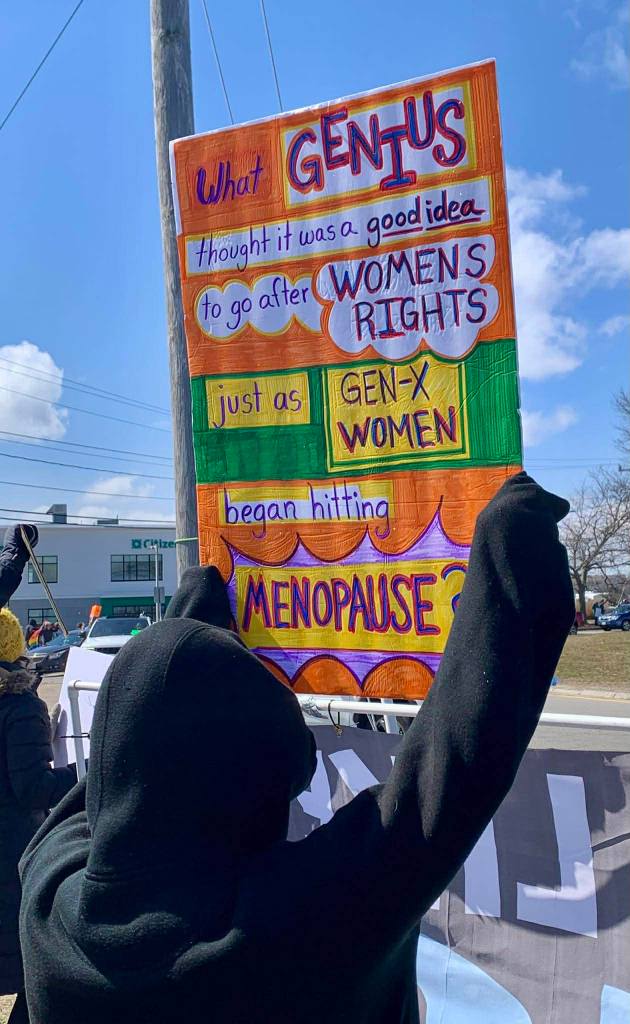 What GENIUS
thought it was a good idea
to go after WOMENS
RIGHTS
just as GEN-X
WOMEN
began hitting
MENOPAUSE?
Citizens